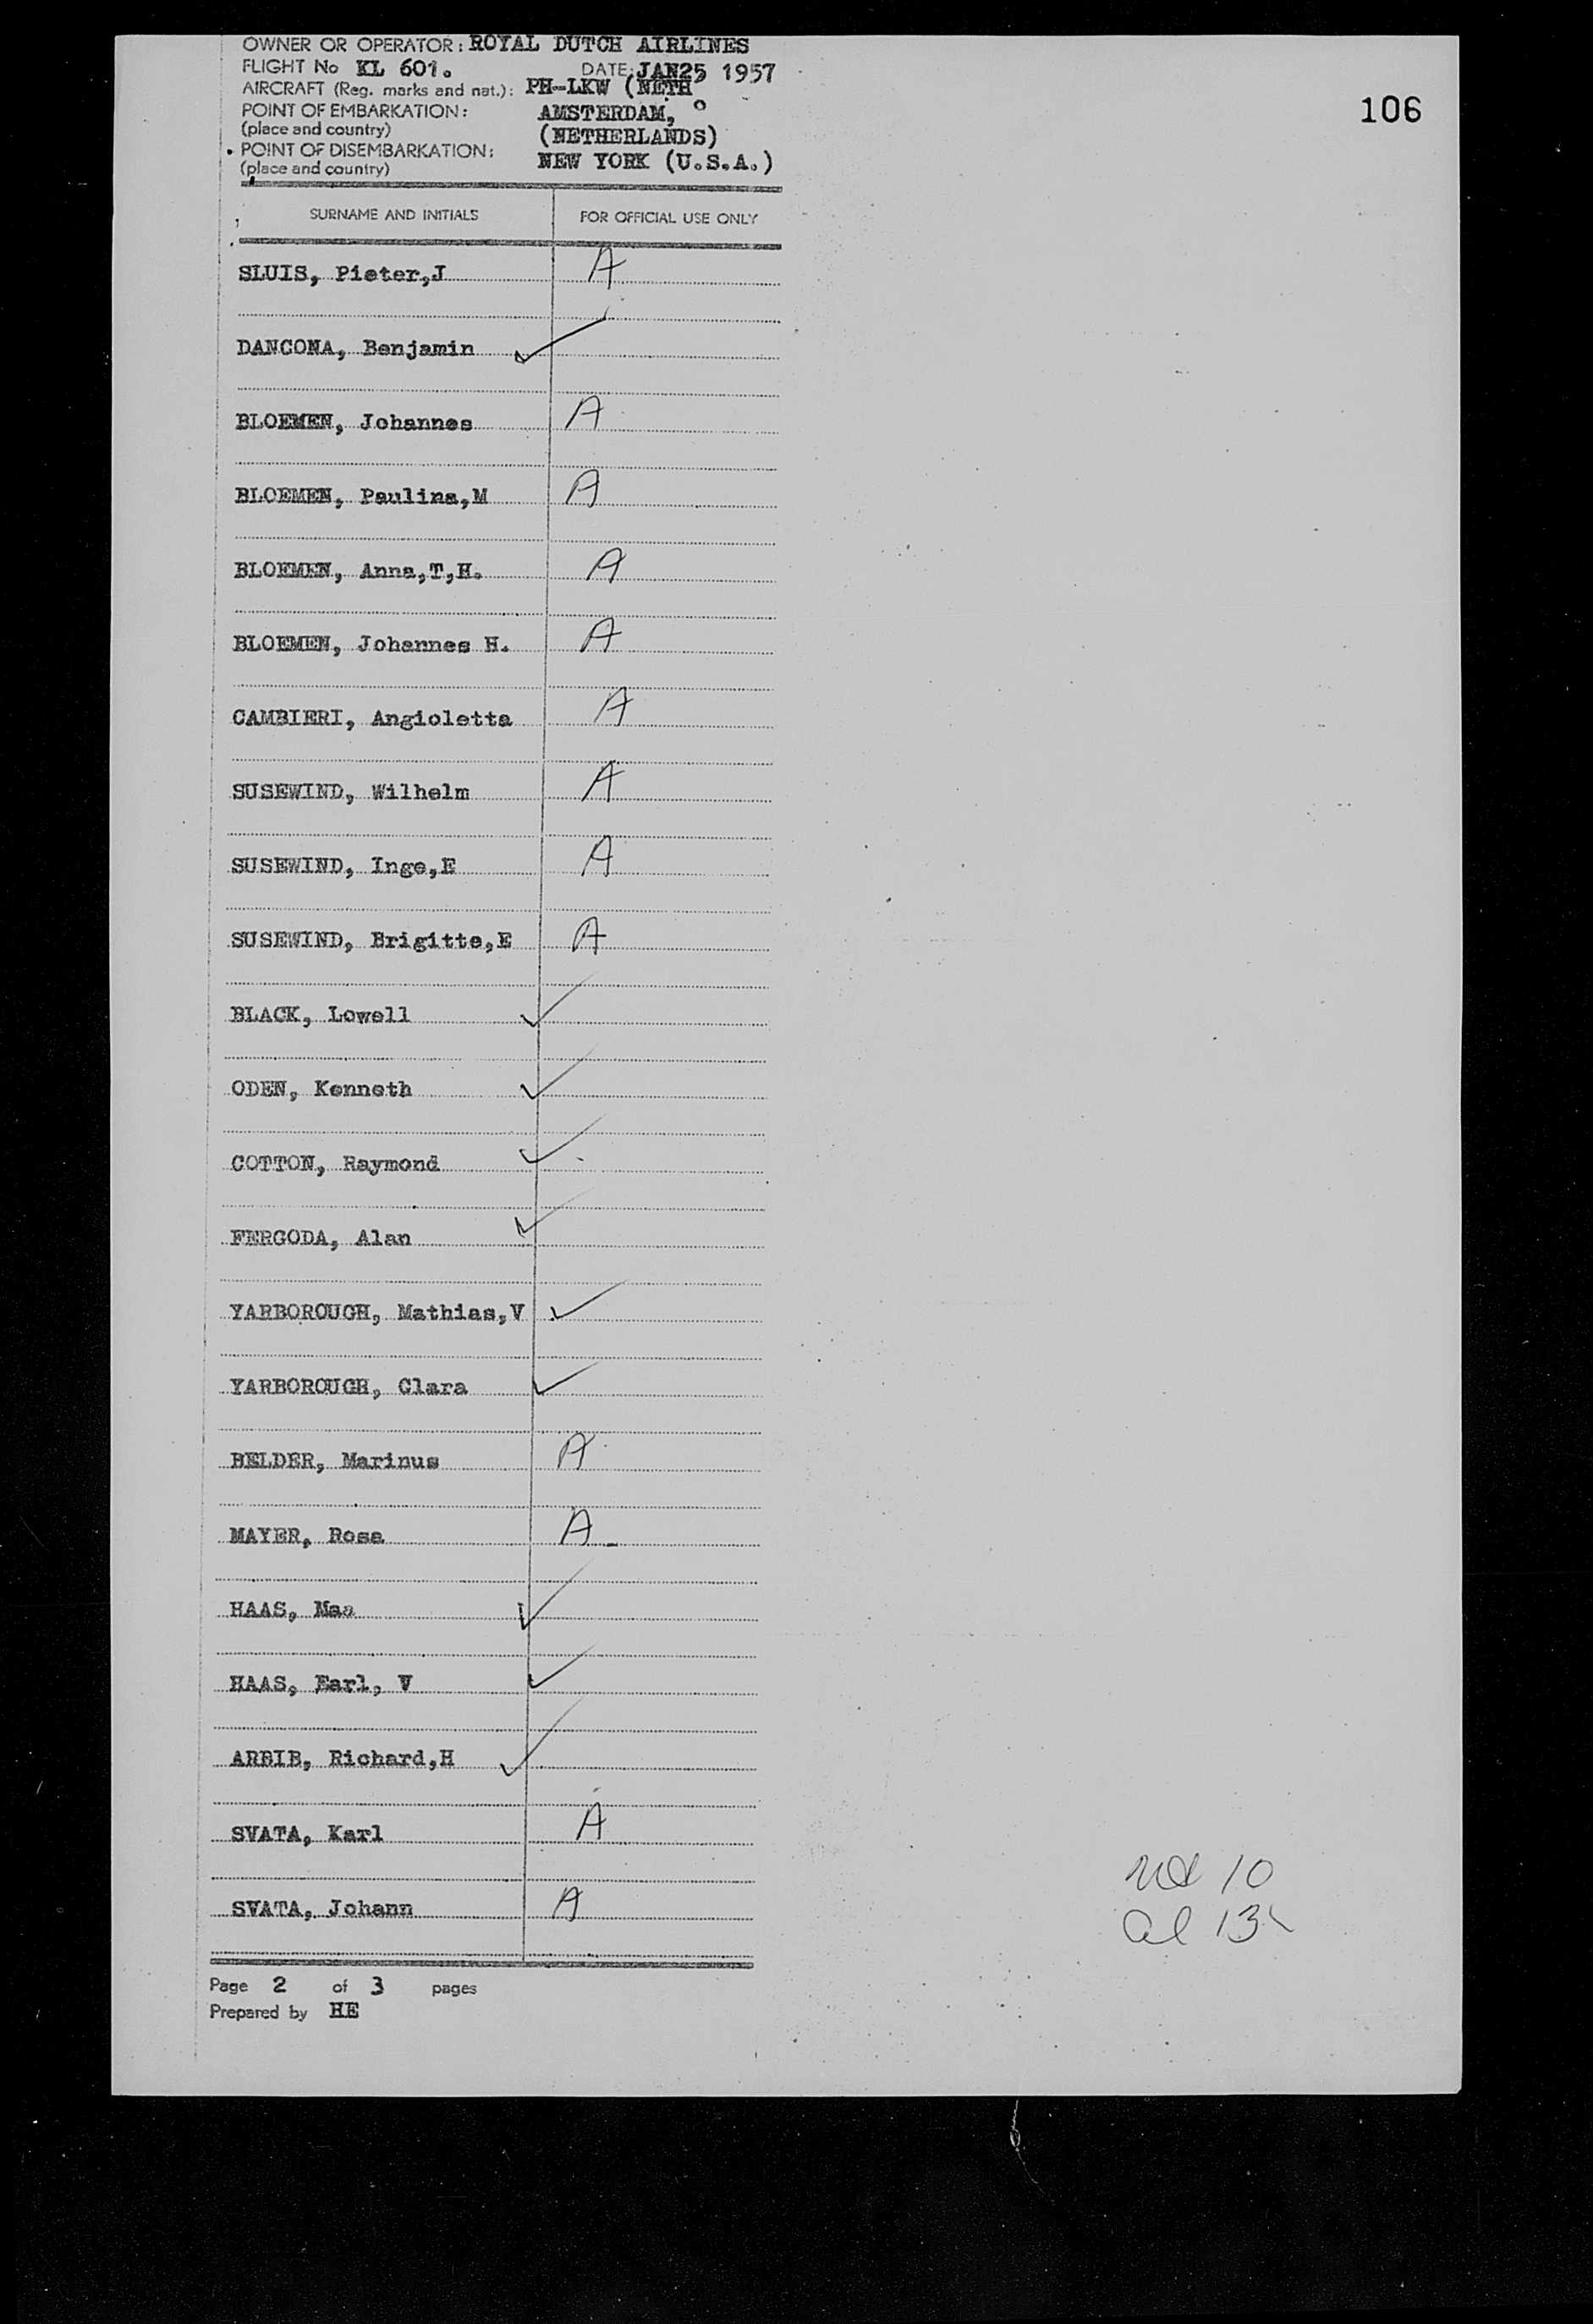 OWNER OR OPERATOR: ROYAL DUTCH AIRLINES
FLIGHT No KL 601. DATE: JAN25 1957
AIRCRAFT (Reg. marks and nat.): PH-LKW (NETH
POINT OF EMBARKATION: AMSTERDAM,
(place and country) (NETHERLANDS)
POINT OF DISEMBARKATION: NEW YORK (U.S.A.)
(place and country)
106
SURNAME AND INITIALS FOR OFFICIAL USE ONLY
SLUIS, Pieter,J A
DANCONA, Benjamin ✓
BLOEMEN, Johannes A
BLOEMEN, Paulina,M A
BLOEMEN, Anna,T,H. A
BLOEMEN, Johannes H. A
CAMBIERI, Angioletta A
SUSEWIND, Wilhelm A
SUSEWIND, Inge,E A
SUSEWIND, Brigitte,E A
BLACK, Lowell ✓
ODEN, Kenneth ✓
COTTON, Raymond ✓
FERGODA, Alan ✓
YARBOROUGH, Mathias,V ✓
YARBOROUGH, Clara ✓
BELDER, Marinus A
MAYER, Rosa A
HAAS, Mae ✓
HAAS, Earl, V ✓
ARBIB, Richard,H ✓
SVATA, Karl A
SVATA, Johann A
10
al 13
Page 2 of 3 pages
Prepared by HE